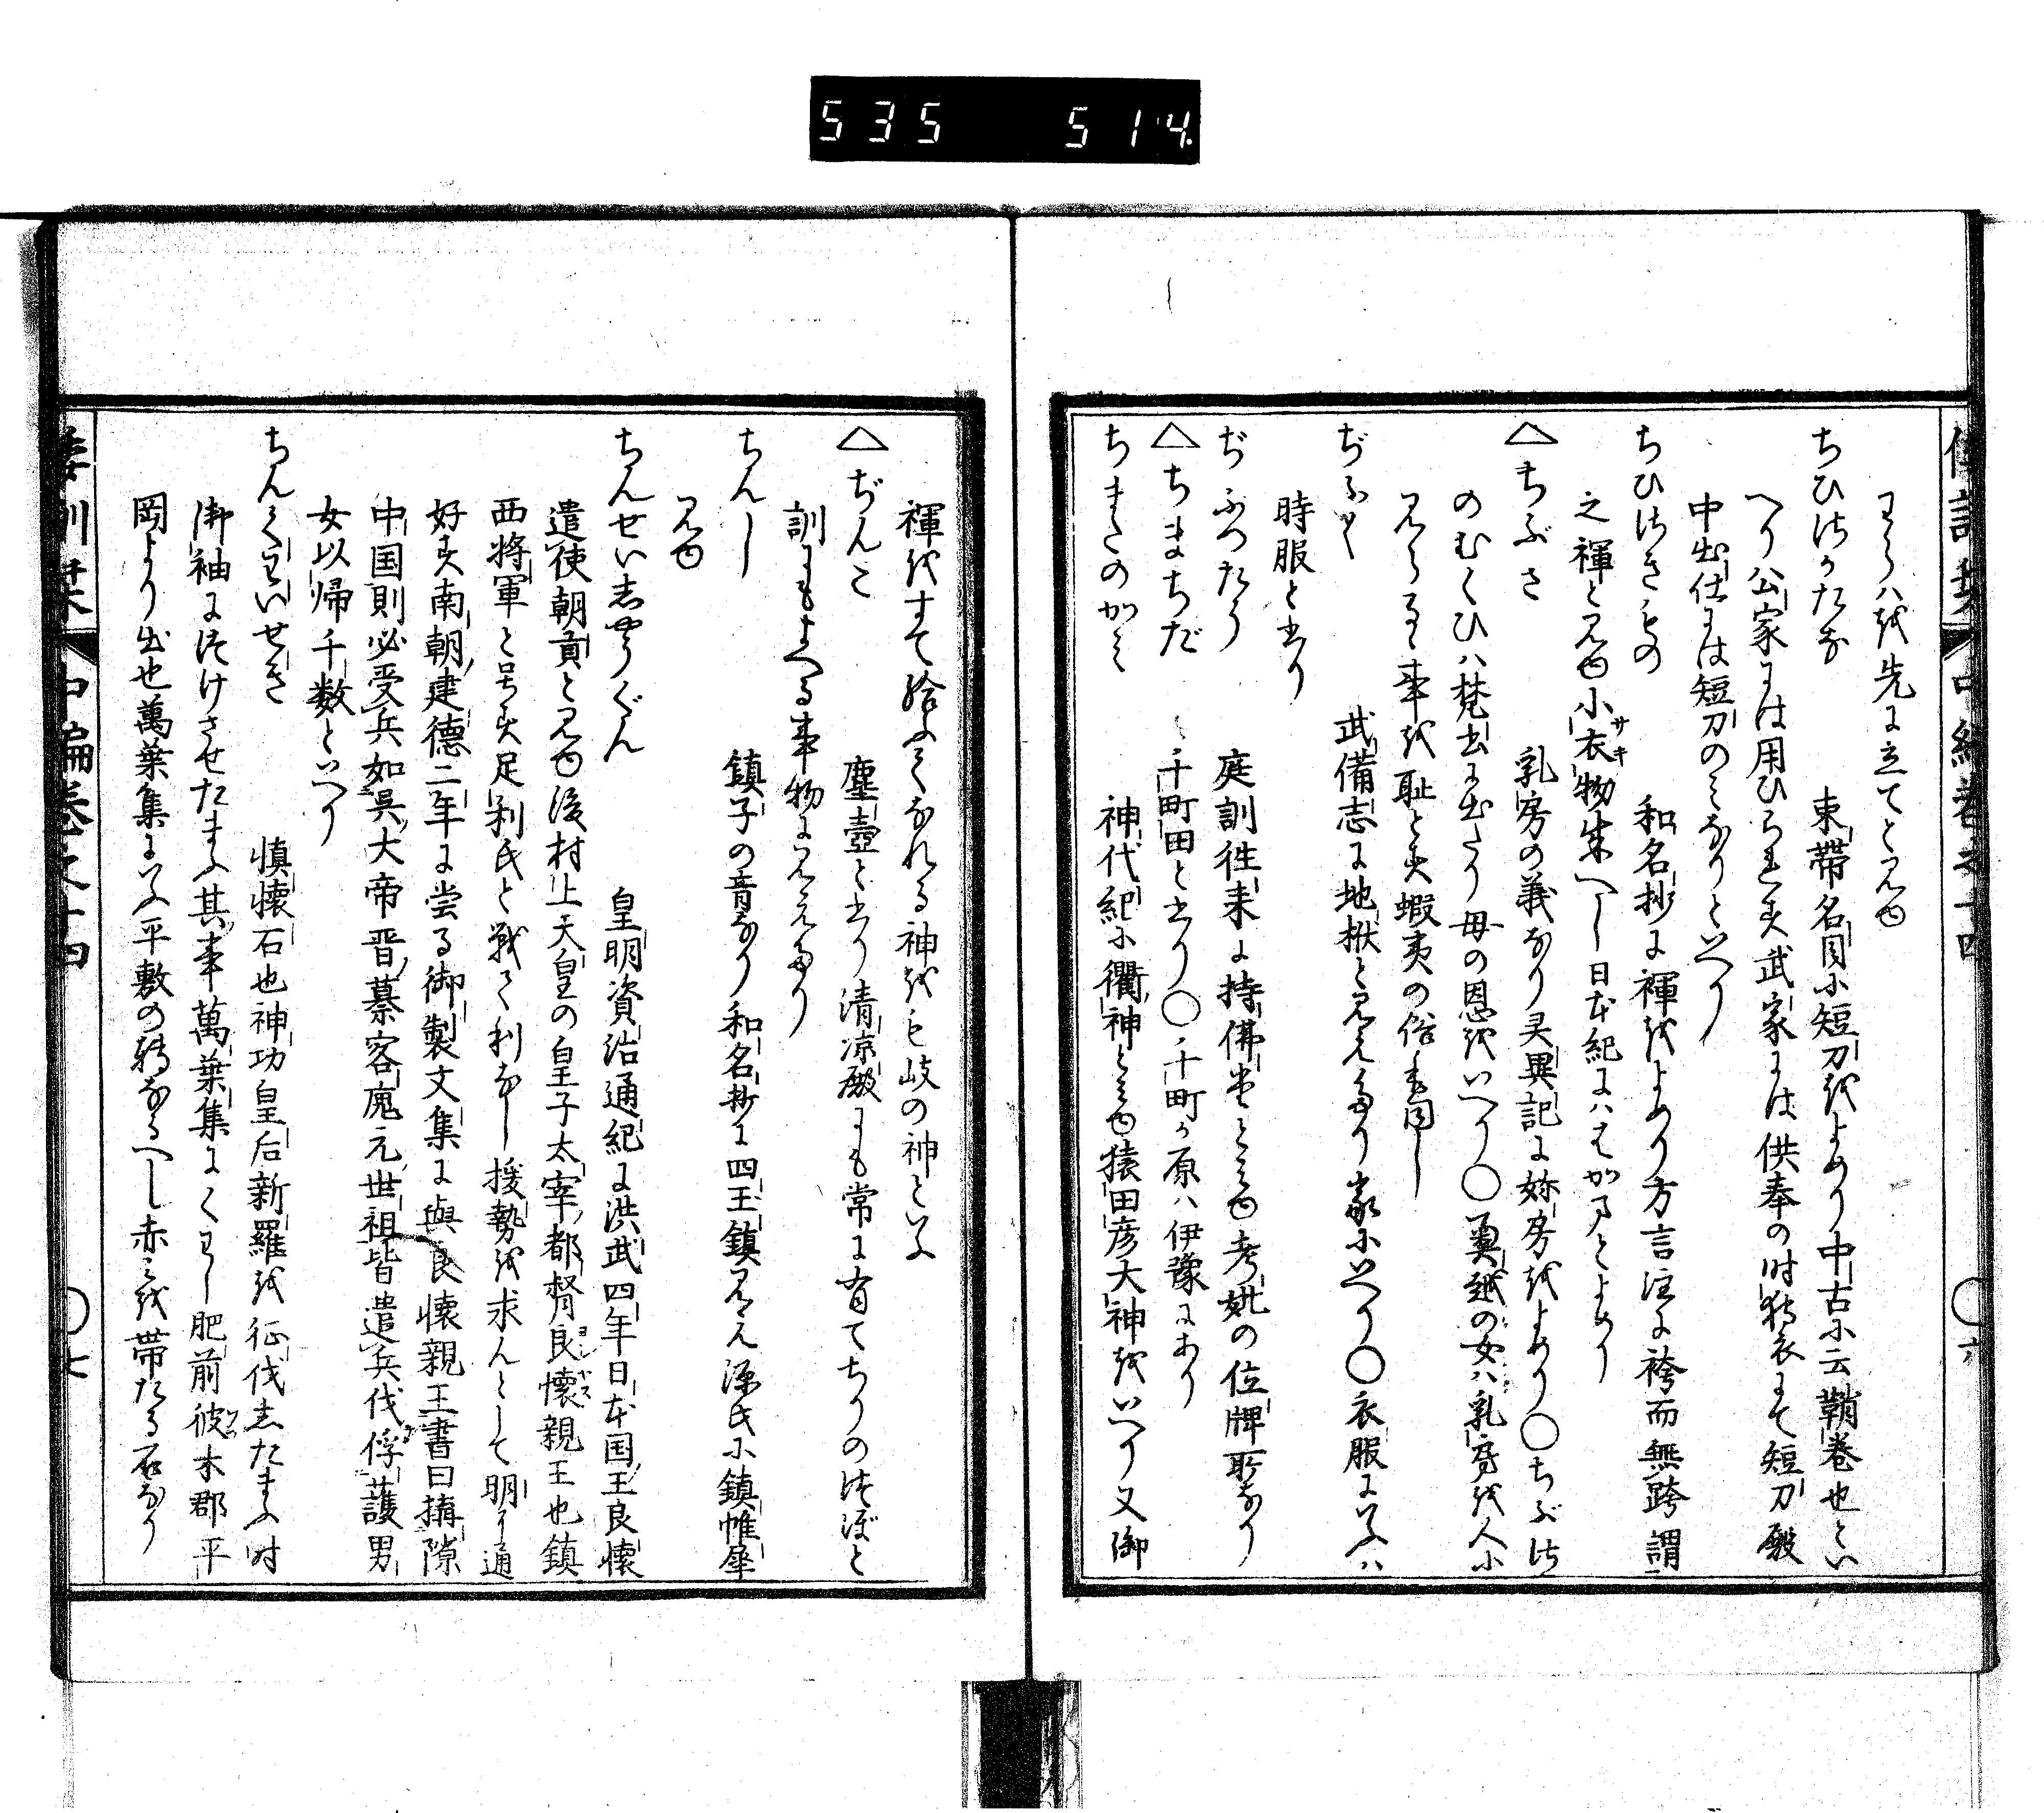 535 514.
倭訓栞 中編巻之十四 ○六
わらハを先に立てと見ゆ
ちひさかたな 束帯名目に短刀をよめり中古に云鞘巻也とい
へり公家には用ひられす武家には供奉の時狩衣にて短刀殿
中出仕には短刀のミなりといへり
ちひさきもの 和名抄に褌をよめり方言注に袴而無跨謂
之褌と見ゆ小衣物成へし日本紀にハはかまとよめり
サキ
△ちぶさ 乳房の義なり灵異記に妳房をよめり○ちぶさ
のむくひハ梵書に出たり母の恩をいへり○の女ハ乳房を人に
見らるゝ事を耻とす蝦夷の俗も同し
ぢふく 武備志に地袱と見えたり家にいへり○衣服にいふハ
時服と書り
ぢぶつたう 庭訓往来に持佛堂とミゆ考妣の位牌所なり
△ちまちだ 千町田と書り○千町か原ハ伊豫にあり
ちまたのかミ 神代紀に衢神とミゆ猿田彦大神をいへり又御
褌をすて給ふてなれる神をも岐の神といふ
△ぢんこ 塵壺と書り清凉殿にも常に有てちりのつぼと
訓にもよへる事物に見えたり
ちんし 鎮子の音なり和名抄に四王鎮見え源氏に鎮帷犀
見ゆ
ちんせい志やうぐん 皇明資治通紀に洪武四年日本国王良懐
遣使朝貢と見ゆ後村上天皇の皇子太宰都督良懐親王也鎮
ヨシヤス
西将軍と号す足利氏と戦て利なし援勢を求んとして明に通
好す南朝建徳二年に当る御製文集に與良懐親王書曰搆隙
中国則必受兵如呉大帝晋慕容廆元世祖皆遣兵伐俘護男
女以帰千数といへり
ちんくわいせき 慎懐石也神功皇后新羅を征伐したまふ時
御袖につけさせたまふ其事萬葉集にくわし肥前彼木郡平
岡より出也萬葉集にいふ平敷の轉なるへし赤ミを帯たる石なり
倭訓栞 中編巻之十四 ○七